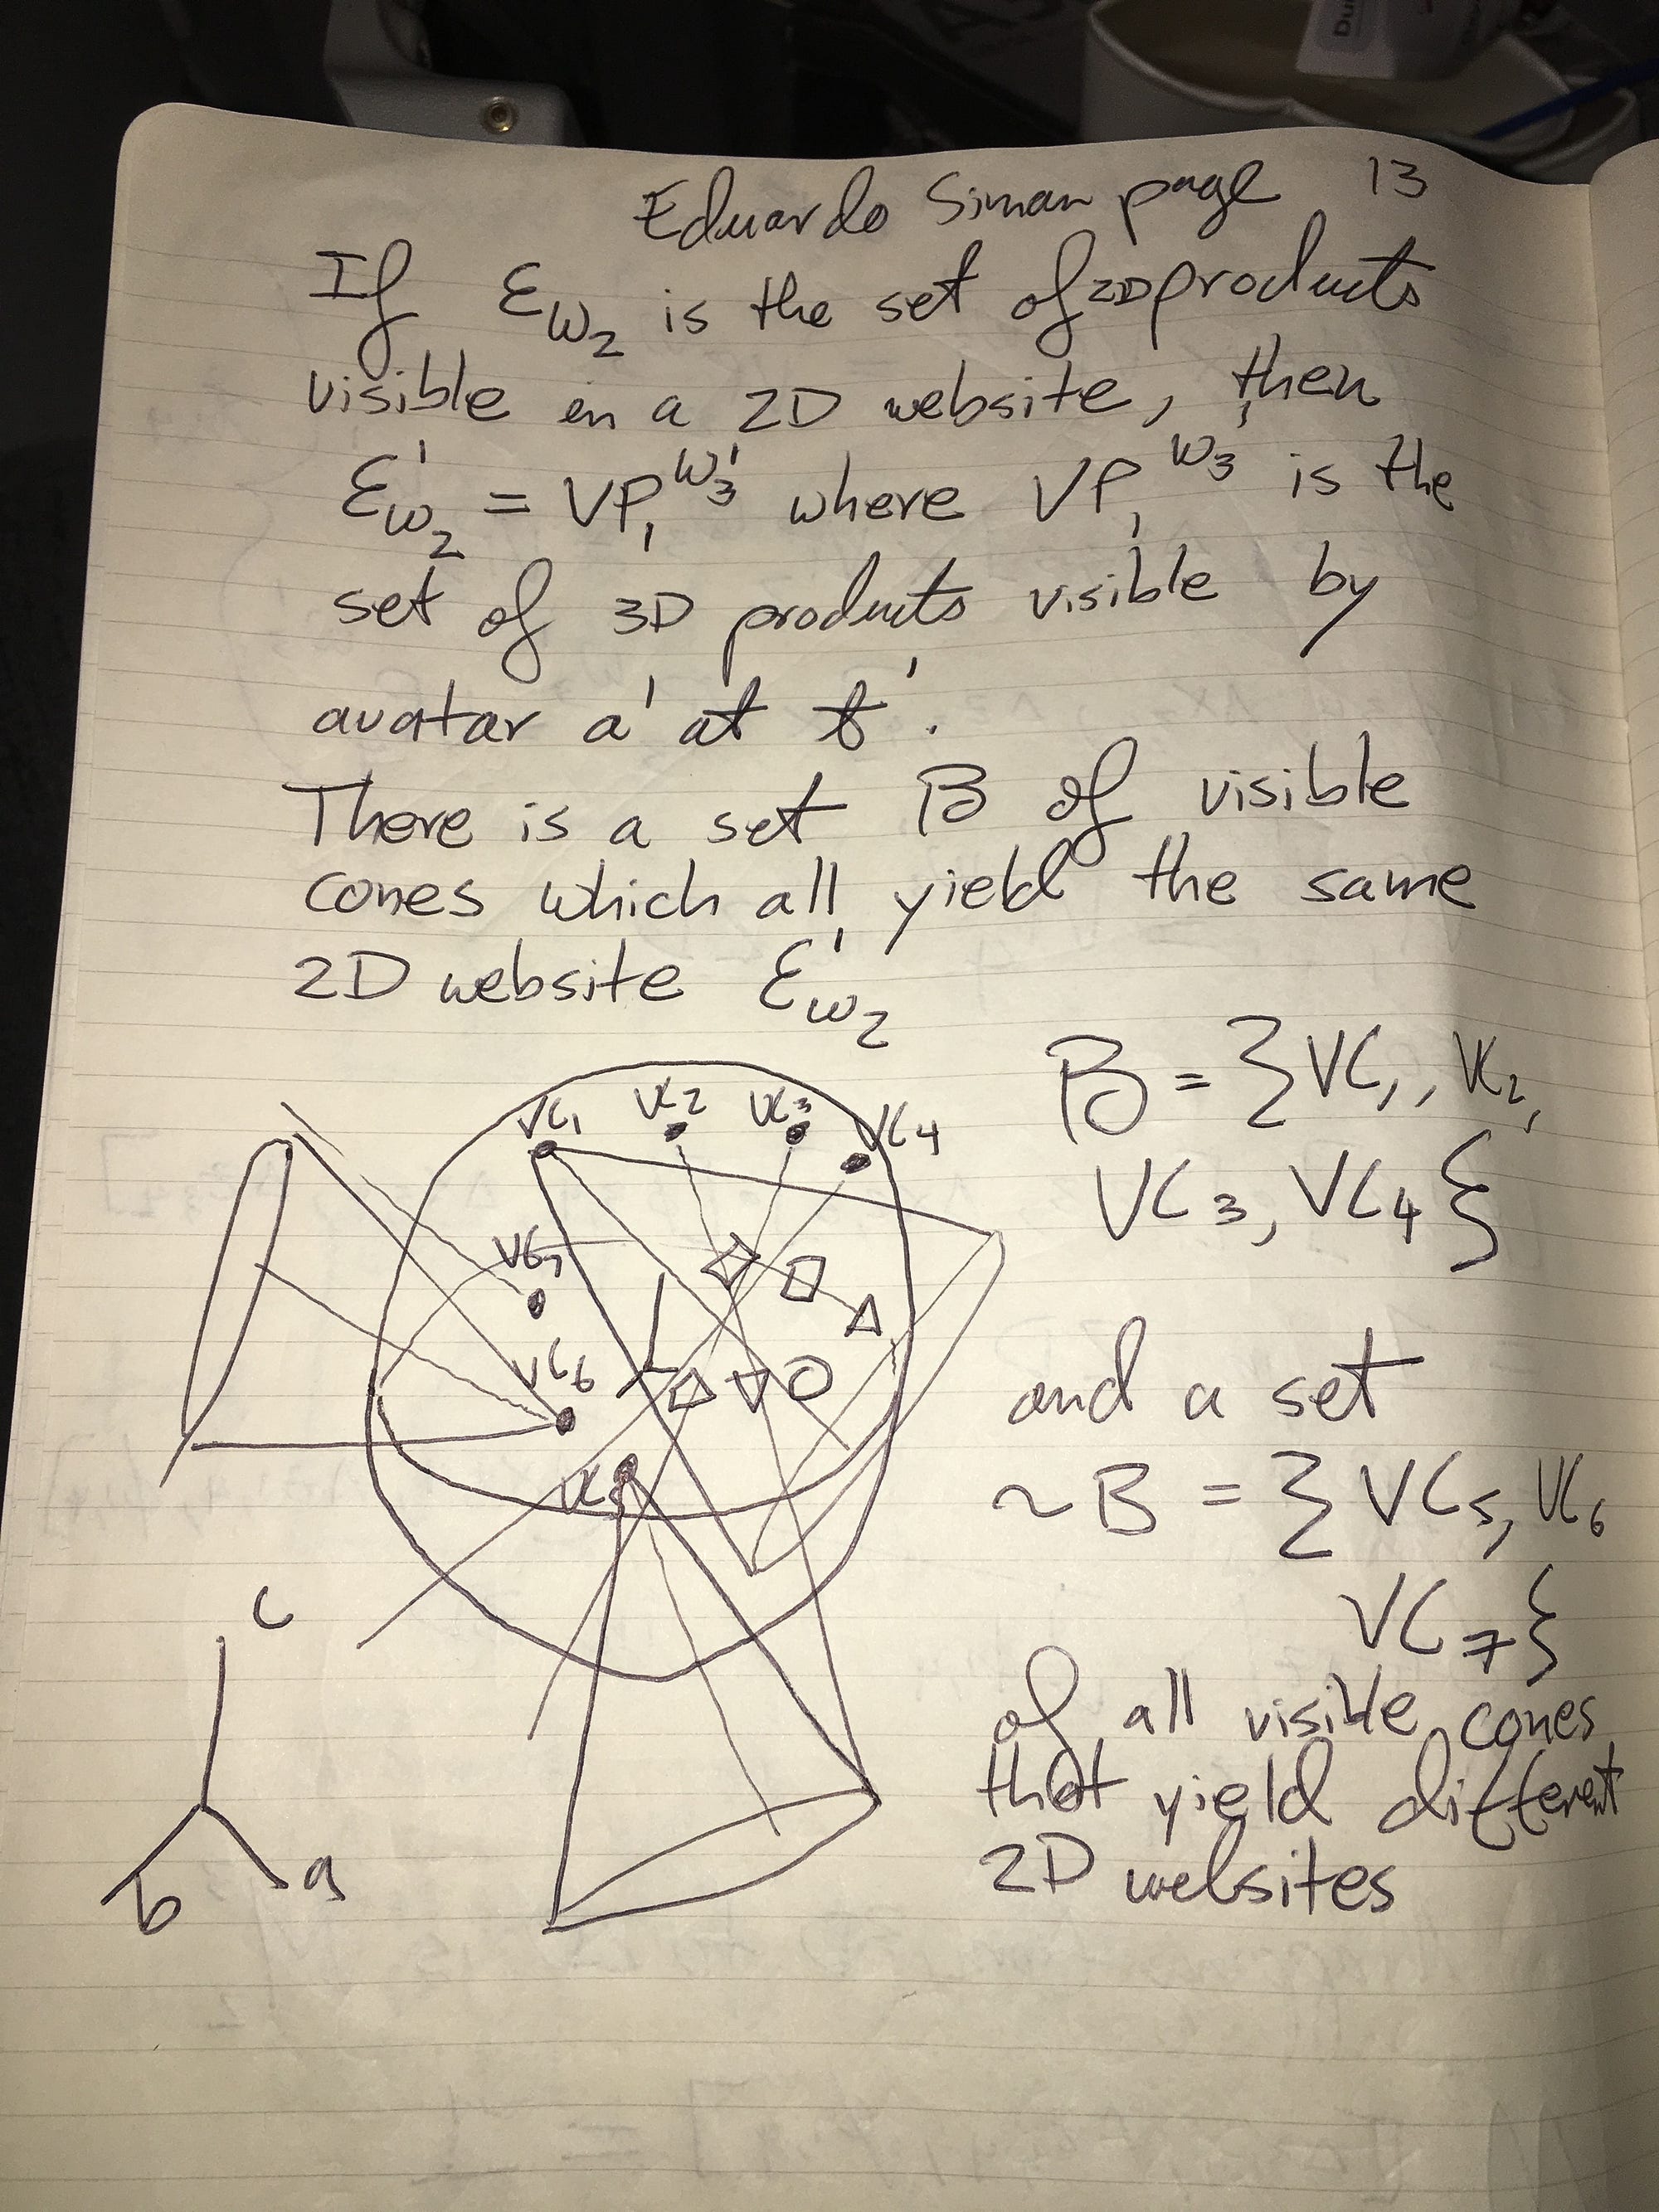 Eduardo Siman page 13
If Ɛw₂ is the set of 2D products
visible in a 2D website, then
Ɛ'w₂ = VP₁^w₃' where VP₁^w₃' is the
set of 3D products visible by
avatar a' at t'.
There is a set B of visible
cones which all yield the same
2D website Ɛ'w₂
B = {VC₁, VC₂,
VC₃, VC₄}
VC₁ VC₂ VC₃ VC₄
VC₇
VC₆
VC₅
and a set
~B = {VC₅, VC₆
VC₇}
of all visible cones
that yield different
2D websites
c
b a